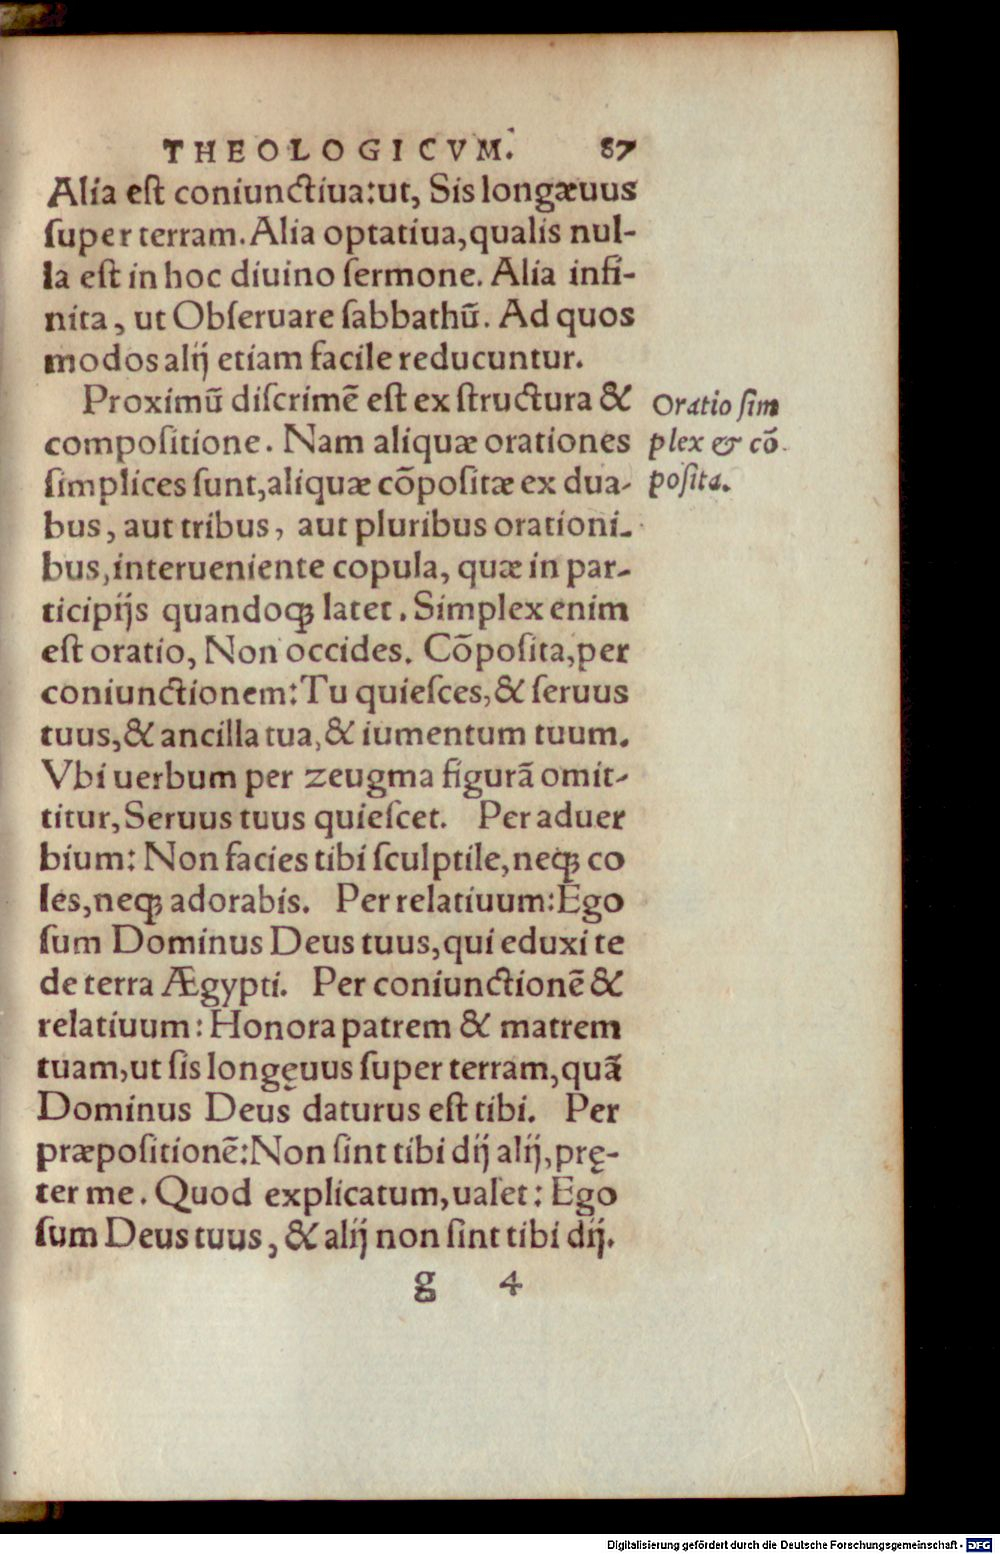 THEOLOGICVM. 87
Alia eſt coniunctiua:ut, Sis longæuus
ſuper terram. Alia optatiua, qualis nul-
la eſt in hoc diuino ſermone. Alia infi-
nita, ut Obſeruare ſabbathū. Ad quos
modos alij etiam facile reducuntur.
Proximū diſcrimē eſt ex ſtructura &
compoſitione. Nam aliquæ orationes
ſimplices ſunt, aliquæ cōpoſitæ ex dua-
bus, aut tribus, aut pluribus orationi-
bus, interueniente copula, quæ in par-
ticipijs quandoq; latet. Simplex enim
eſt oratio, Non occides. Cōpoſita, per
coniunctionem: Tu quieſces, & ſeruus
tuus, & ancilla tua, & iumentum tuum.
Vbi uerbum per zeugma figurā omit-
titur, Seruus tuus quieſcet. Per aduer
bium: Non facies tibi ſculptile, neq; co
les, neq; adorabis. Per relatiuum: Ego
ſum Dominus Deus tuus, qui eduxi te
de terra Ægypti. Per coniunctionē &
relatiuum: Honora patrem & matrem
tuam, ut ſis longęuus ſuper terram, quā
Dominus Deus daturus eſt tibi. Per
præpoſitionē: Non ſint tibi dij alij, prę-
ter me. Quod explicatum, ualet: Ego
ſum Deus tuus, & alij non ſint tibi dij.
g 4
Oratio ſim
plex & cō
poſita.
Digitalisierung gefördert durch die Deutsche Forschungsgemeinschaft - DFG